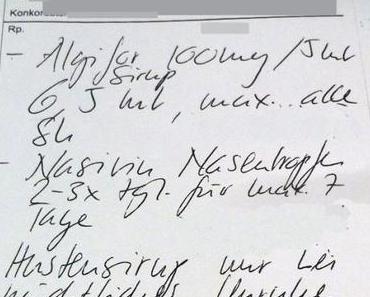 Rp.
– Algifor 100mg/5ml
Sirup
6,5ml, max. alle
8h
– Nasivin Nasentropfen
2-3x tgl. für max. 7
Tage
Hustensirup nur bei